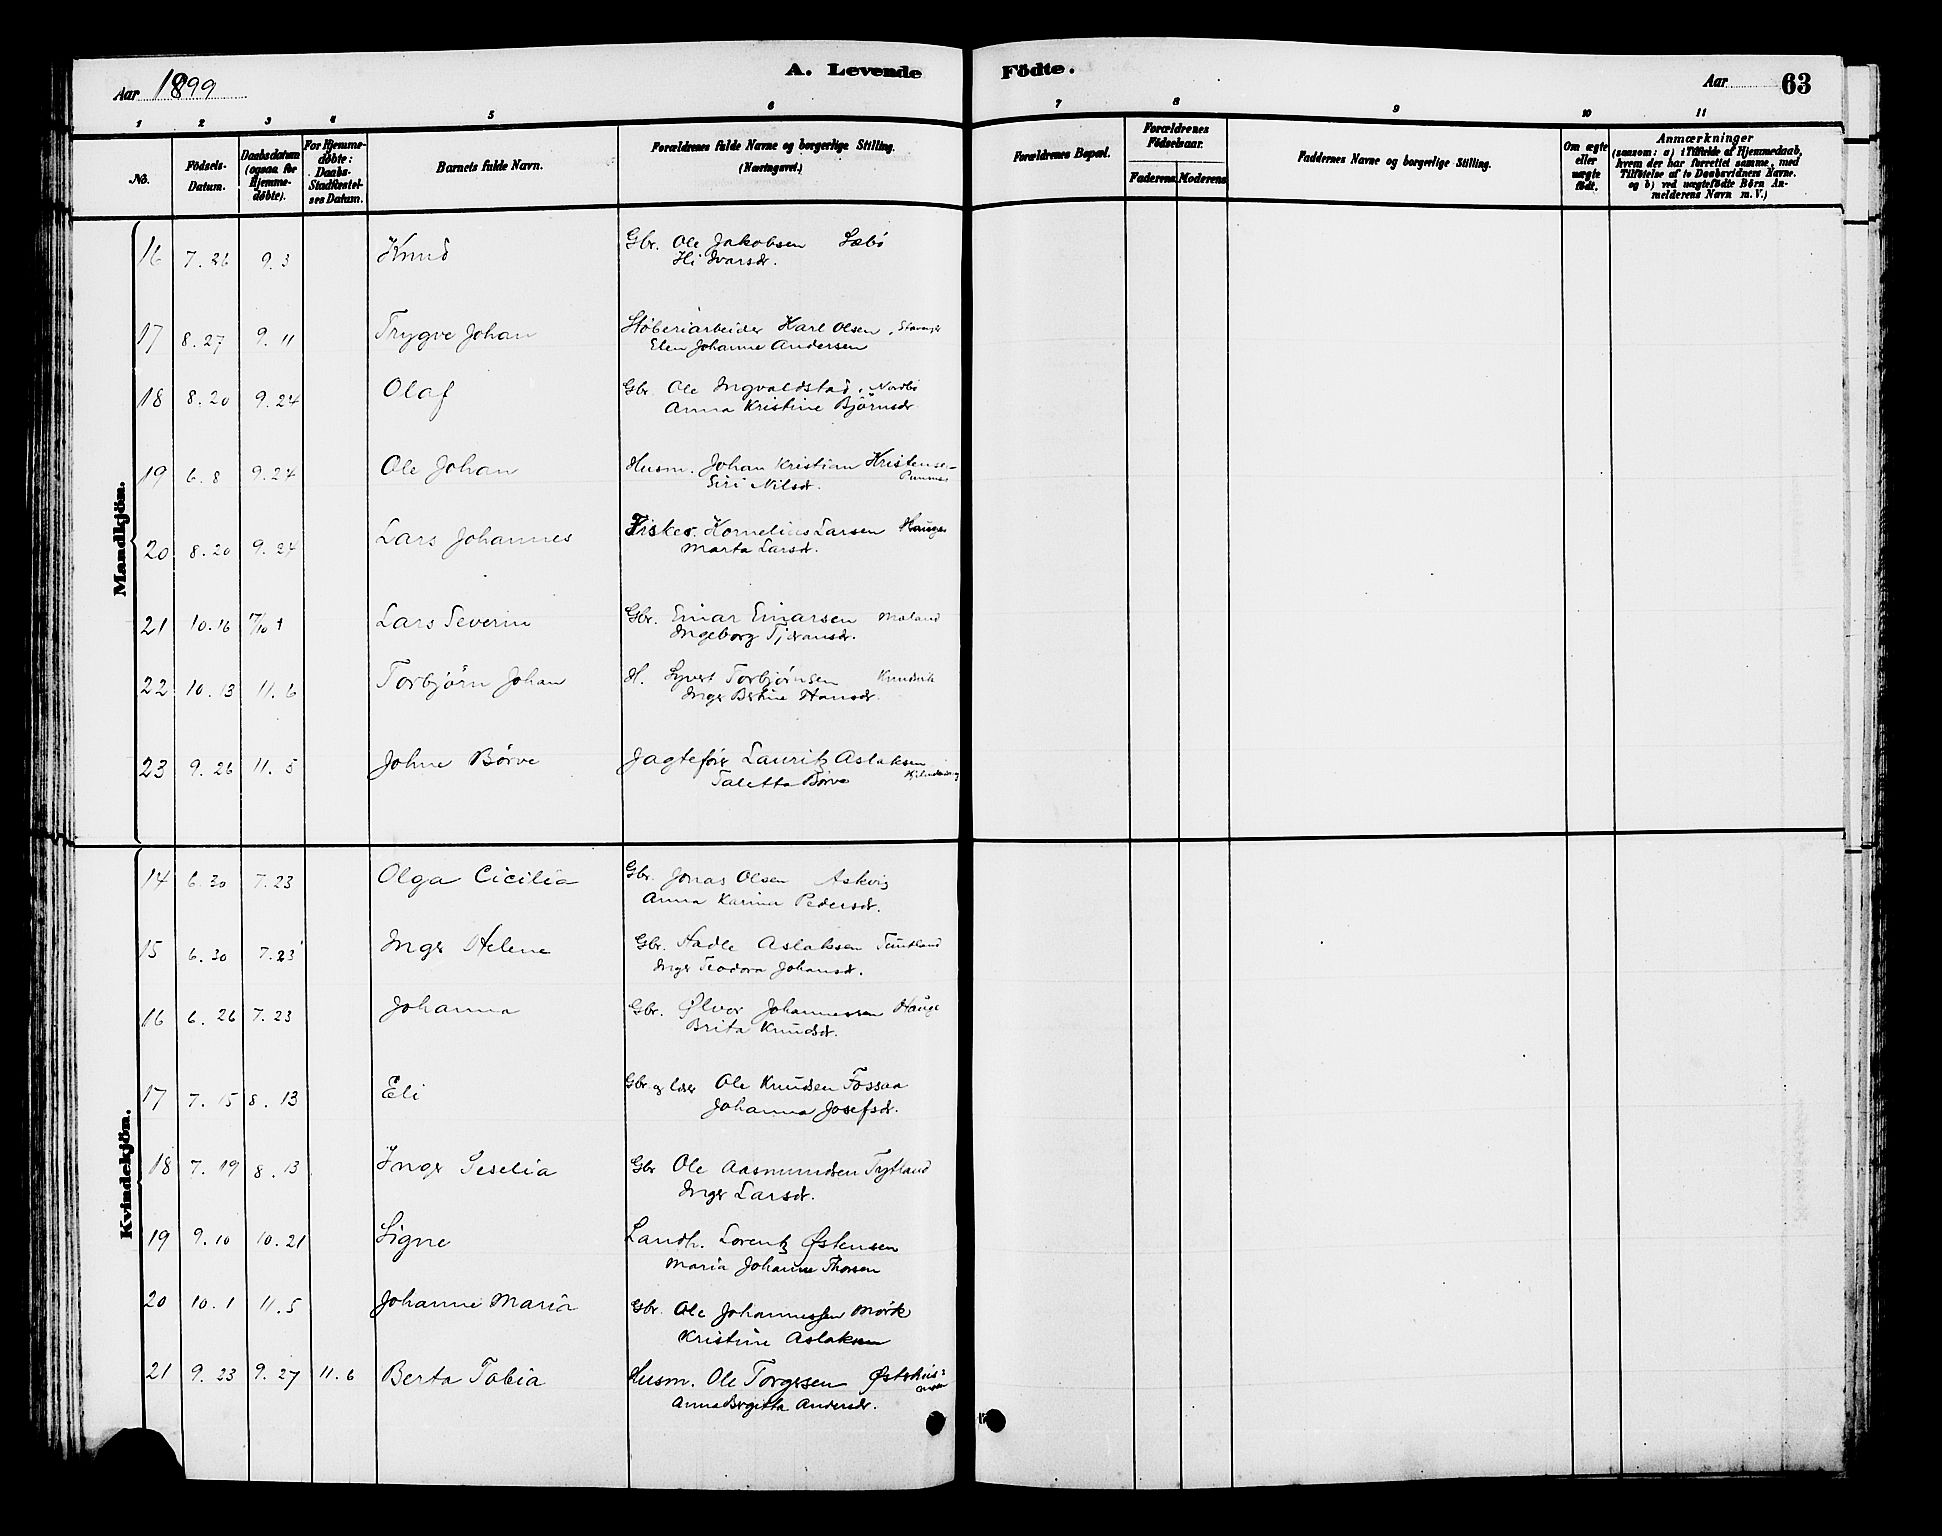 A. Levende Födte.
Aar 1899
Aar 63
1 2 3 4 5 6 7 8 9 10 11
No.
Födsels-Datum.
Daabsdatum (ogsaa for Hjemme-döbte).
For Hjemme-döbte: Daabs-Stadfæstel-ses Datum.
Barnets fulde Navn.
Forældrenes fulde Navne og borgerlige Stilling. (Næringsvei.)
Forældrenes Bopæl.
Forældrenes Födselsaar.
Faderens. Moderens.
Faddernes Navne og borgerlige Stilling.
Om ægte eller uægte født.
Anmærkninger
(saasom: a) i Tilfælde af Hjemmedaab,
hvem der har forrettet samme, med
Tilföielse af to Daabsvidners Navne.
og b) ved uægtefödte Börn An-
melderens Navn m. V.)
Mandkjön.
16 7.26 9.3 Knud Gbr. Ole Jakobsen Sæbö
Hi Ivarsdr.
17 8.27 9.11 Trygve Johan Støberiarbeider Karl Olsen, Stavanger
Elen Johanne Andersen
18 8.20 9.24 Olaf Gbr. Ole Ingvaldstad, Nordbö
Anna Kristine Björnsdr
19 6.8 9.24 Ole Johan Husm. Johan Kristian Kristense-
Siri Nilsdr.
20 8.20 9.24 Lars Johannes Fisker. Kornelius Larsen Hauge
Marta Larsdr.
21 10.16 17/10 t Lars Severin Gbr. Einar Einarsen Moland
Ingeborg Tjeransdr.
22 10.13 11.6 Torbjörn Johan H. Syvert Torbjørnsen
Inger Bertine Hansdr.
23 9.26 11.5 Johne Børve Jagtefør Lauritz Aslaksen
Taletta Børve
Kvindekjön.
14 6.30 7.23 Olga Cicilia Gbr. Jonas Olsen Askvig
Anna Karina Pedersdr.
15 6.30 7.23 Inger Helene Gbr. Aslaksen Tuntland
Inger Teodora Johansdr.
16 6.26 7.23 Johanna Gbr. Ølver Johannessen Hauge
Brita Knudsdr.
17 7.15 8.13 Eli Gbr og lærer Ole Knudsen Fossaa
Johanna Josefsdr.
18 7.19 8.13 Inger Seselia Gbr Ole Aasmundsen Tytland
Inger Larsdr.
19 9.10 10.21 Signe Landh. Lorentz Østensen
Maria Johanne Thorsen
20 10.1 11.5 Johanne Maria Gbr. Ole Johannessen Mørk
Kristine Aslaksen
21 9.23 9.27 11.6 Berta Tobia Husm. Ole Torgersen
Anna Bergitta Andersdr.